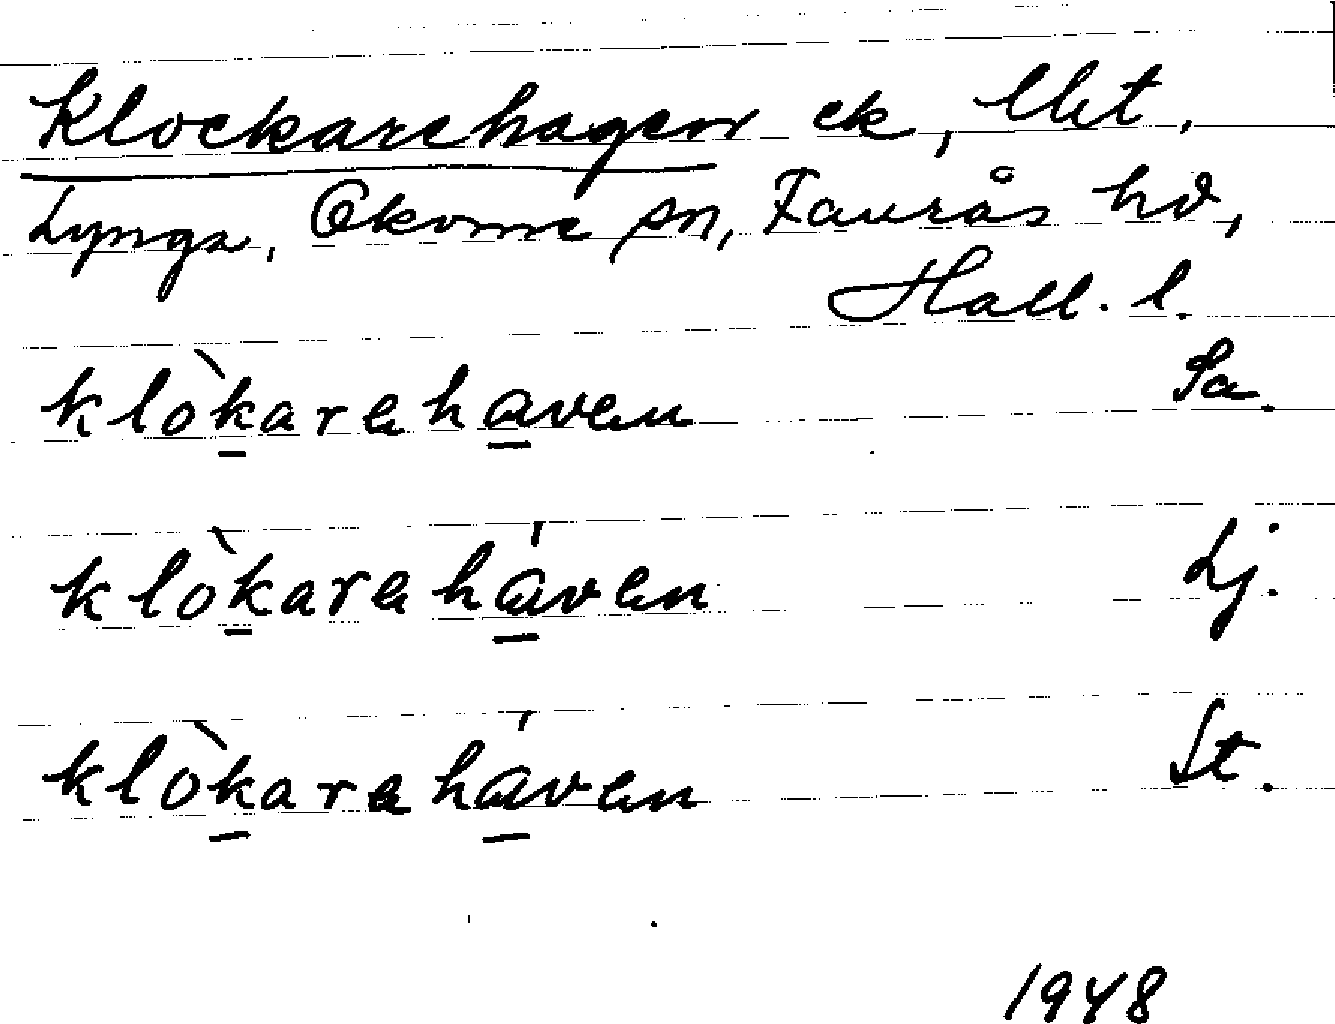 Klockarehagen ek, Ulet,
Lynga, Okome sn, Faurås hd,
Hall. l.
klòkarehaven Sa.
klòkareháven Lj.
klòkareháven St.
1948